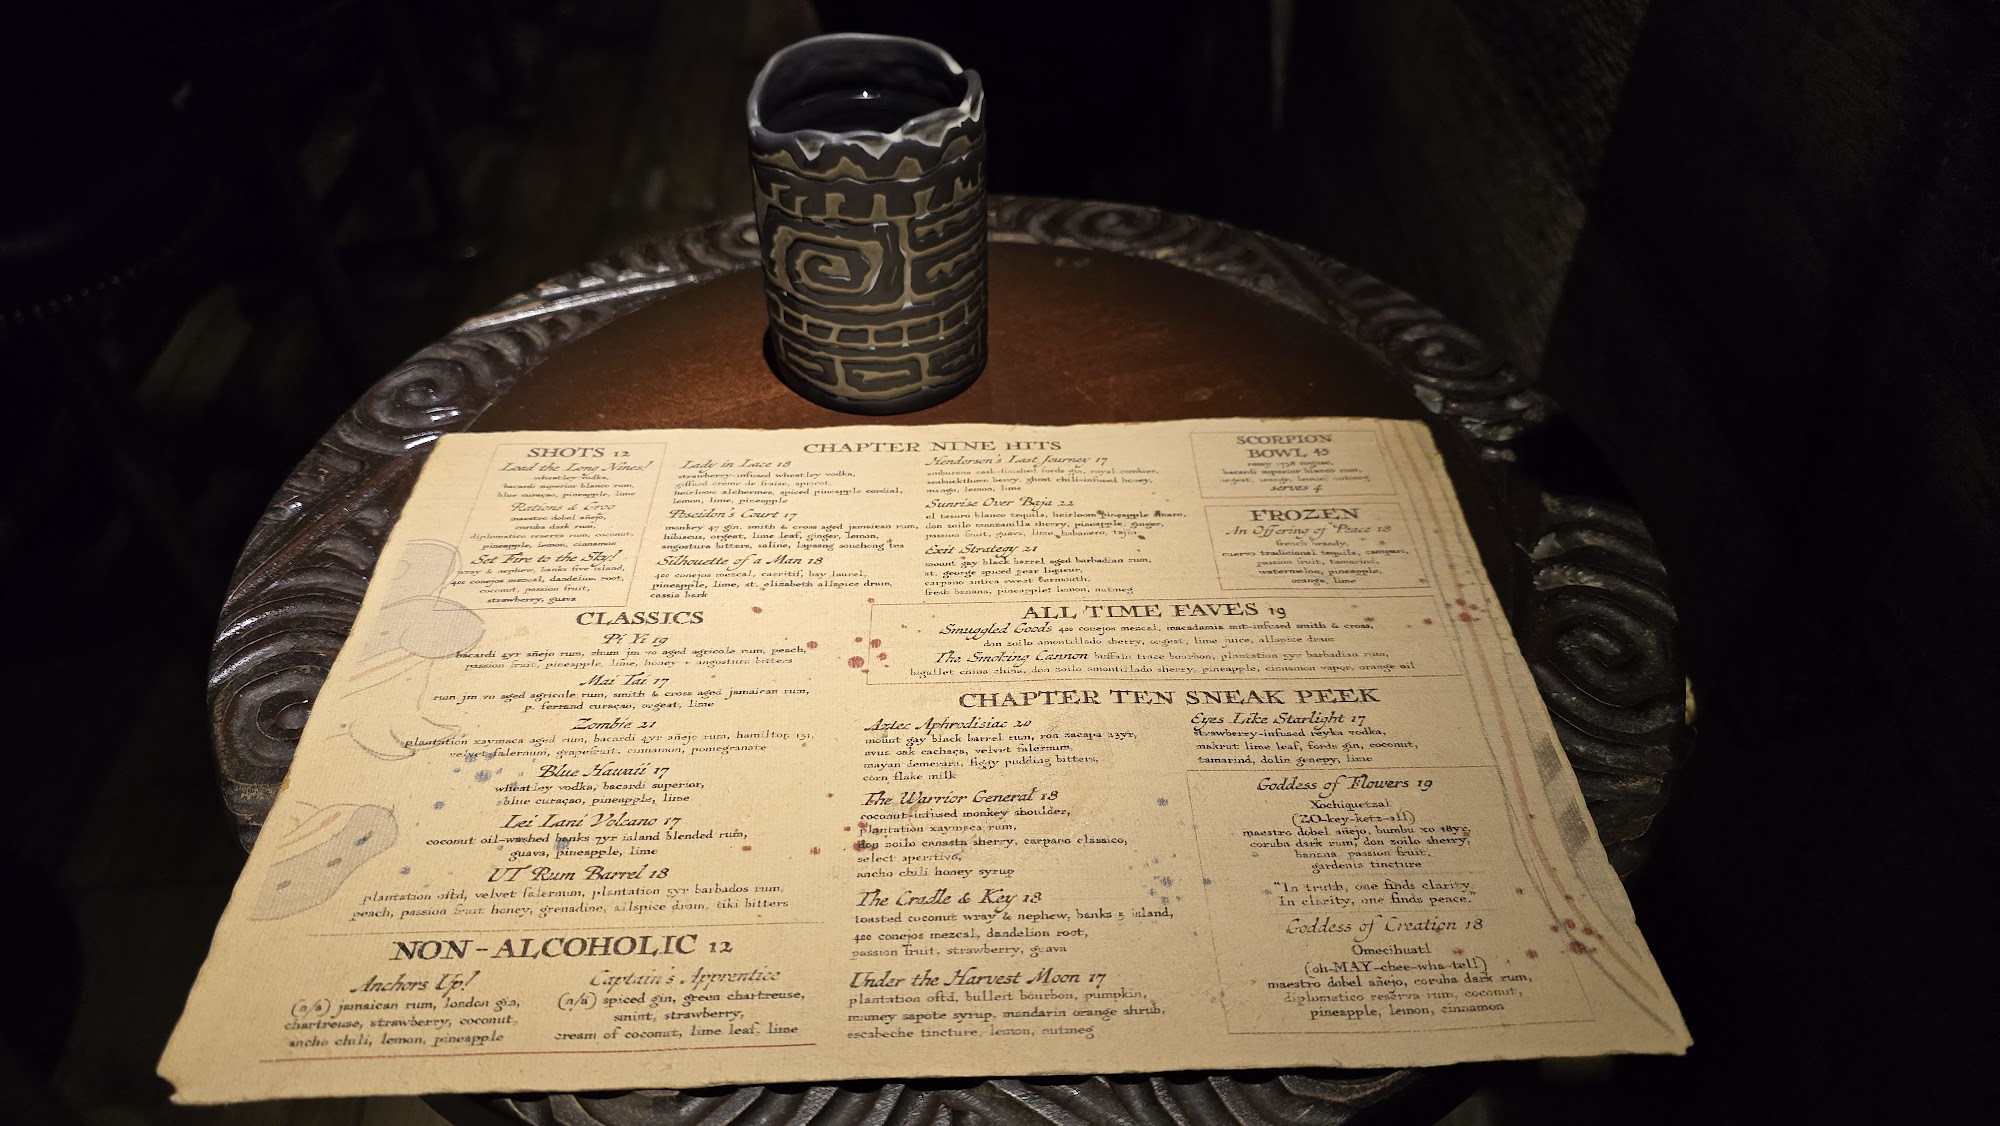 SHOTS 12
Load the Long Nines!
wheatley vodka,
bacardi superior blanco rum,
blue curaçao, pineapple, lime
Rations & Grog
maestro dobel añejo,
coruba dark rum,
diplomatico reserva rum, coconut,
pineapple, lemon, cinnamon
Set Fire to the Sky!
wray & nephew, banks five island,
400 conejos mezcal, dandelion root,
coconut, passion fruit,
strawberry, guava
CHAPTER NINE HITS
Lady in Lace 18
strawberry-infused wheatley vodka,
giffard crème de fraise, apricot,
heirloom alchermes, spiced pineapple cordial,
lemon, lime, pineapple
Poseidon's Court 17
monkey 47 gin, smith & cross aged jamaican rum,
hibiscus, orgeat, lime leaf, ginger, lemon,
angostura bitters, saline, lapsang souchong tea
Silhouette of a Man 18
400 conejos mezcal, caeritif, bay laurel,
pineapple, lime, st. elizabeth allspice dram,
cassia bark
Henderson's Last Journey 17
amburana cask-finished fords gin, royal combier,
seabuckthorn berry, ghost chili-infused honey,
mango, lemon, lime
Sunrise Over Baja 22
el tesoro blanco tequila, heirloom pineapple amaro,
don zoilo manzanilla sherry, pineapple, ginger,
passion fruit, guava, lime, habanero, tajin
Exit Strategy 21
mount gay black barrel aged barbadian rum,
st. george spiced pear liqueur,
carpano antica sweet vermouth,
fresh banana, pineapple, lemon, nutmeg
SCORPION
BOWL 45
remy 1738 cognac,
bacardi superior blanco rum,
orgeat, orange, lemon, nutmeg
serves 4
FROZEN
An Offering of Peace 18
french brandy,
cuervo tradicional tequila, campari,
passion fruit, tamarind,
watermelon, pineapple,
orange, lime
CLASSICS
Pi Yi 19
bacardi 4yr añejo rum, rhum jm vo aged agricole rum, peach,
passion fruit, pineapple, lime, honey + angostura bitters
Mai Tai 17
rum jm vo aged agricole rum, smith & cross aged jamaican rum,
p. ferrand curaçao, orgeat, lime
Zombie 21
plantation xaymaca aged rum, bacardi 4yr añejo rum, hamilton 151,
velvet falernum, grapefruit, cinnamon, pomegranate
Blue Hawaii 17
wheatley vodka, bacardi superior,
blue curaçao, pineapple, lime
Lei Lani Volcano 17
coconut oil-washed banks 7yr island blended rum,
guava, pineapple, lime
UT Rum Barrel 18
plantation oftd, velvet falernum, plantation 5yr barbados rum,
peach, passion fruit honey, grenadine, allspice dram, tiki bitters
NON-ALCOHOLIC 12
Anchors Up!
(n/a) jamaican rum, london gin,
chartreuse, strawberry, coconut,
ancho chili, lemon, pineapple
Captain's Apprentice
(n/a) spiced gin, green chartreuse,
mint, strawberry,
cream of coconut, lime leaf, lime
ALL TIME FAVES 19
Smuggled Goods 400 conejos mezcal, macadamia nut-infused smith & cross,
don zoilo amontillado sherry, orgeat, lime juice, allspice dram
The Smoking Cannon buffalo trace bourbon, plantation 5yr barbadian rum,
bigallet china china, don zoilo amontillado sherry, pineapple, cinnamon vapor, orange oil
CHAPTER TEN SNEAK PEEK
Aztec Aphrodisiac 20
mount gay black barrel rum, ron zacapa 23yr,
avua oak cachaça, velvet falernum,
mayan demerara, figgy pudding bitters,
corn flake milk
The Warrior General 18
coconut-infused monkey shoulder,
plantation xaymaca rum,
don zoilo canasta sherry, carpano classico,
select aperitivo,
ancho chili honey syrup
The Cradle & Key 18
toasted coconut wray & nephew, banks 5 island,
400 conejos mezcal, dandelion root,
passion fruit, strawberry, guava
Under the Harvest Moon 17
plantation oftd, bulleit bourbon, pumpkin,
mamey sapote syrup, mandarin orange shrub,
escabeche tincture, lemon, nutmeg
Eyes Like Starlight 17
strawberry-infused reyka vodka,
makrut lime leaf, fords gin, coconut,
tamarind, dolin genepy, lime
Goddess of Flowers 19
Xochiquetzal
(ZO-key-ketz-all)
maestro dobel añejo, bumbu xo 18yr,
coruba dark rum, don zoilo sherry,
banana, passion fruit,
gardenia tincture
"In truth, one finds clarity,
In clarity, one finds peace."
Goddess of Creation 18
Omecihuatl
(oh-MAY-chee-wha-tell)
maestro dobel añejo, coruba dark rum,
diplomatico reserva rum, coconut,
pineapple, lemon, cinnamon